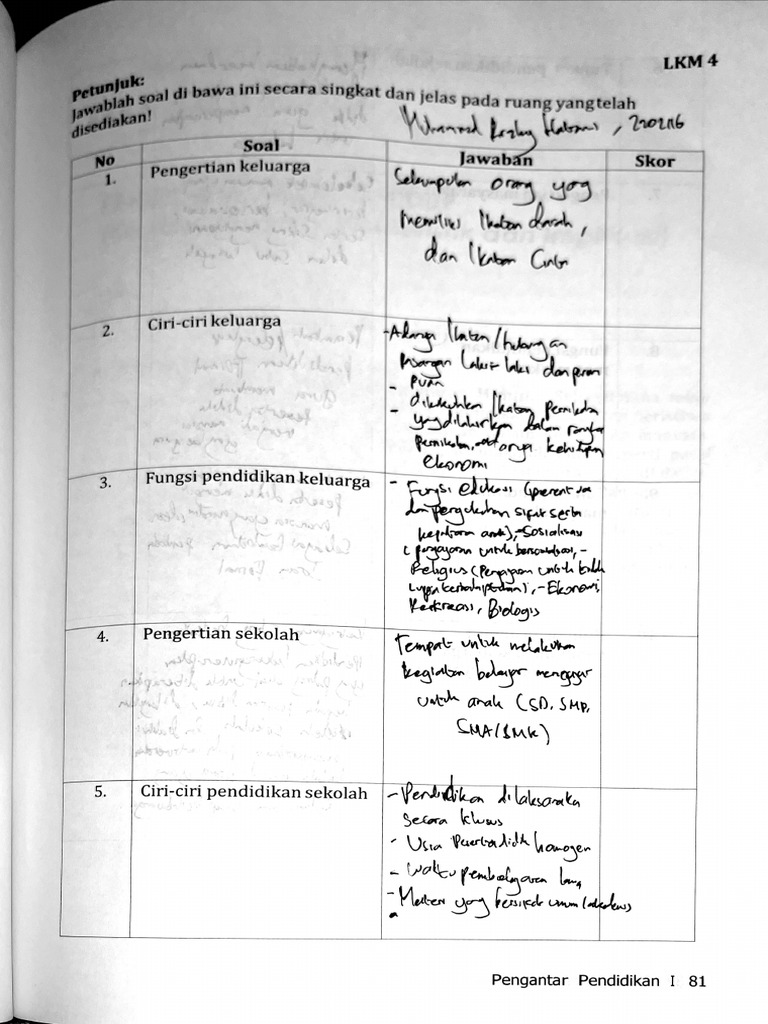 LKM 4
Petunjuk:
Jawablah soal di bawa ini secara singkat dan jelas pada ruang yang telah
disediakan!
No Soal Jawaban Skor
1. Pengertian keluarga
Sekumpulan orang yang
memiliki Ikatan darah,
dan Ikatan Cinta
2. Ciri-ciri keluarga
- Adanya Ikatan/hubungan
Pasangan laki-laki dan perem
puan
- dikukuhkan Ikatan pernikahan
- yang dilahirkan dalam
pernikahan, kehidupan
ekonomi
3. Fungsi pendidikan keluarga
- Fungsi edukasi
dan pengukuhan sifat serta
anak), - Sosialisasi
(pengajaran untuk bersosialisasi, -
Religius (Pengajaran untuk
- Ekonomi,
Rekreasi, Biologis
4. Pengertian sekolah
Tempat untuk melakukan
kegiatan belajar mengajar
untuk anak (SD, SMP,
SMA/SMK)
5. Ciri-ciri pendidikan sekolah
- Pendidikan dilaksanaka
secara khusus
- Usia Peserta didik homogen
- Waktu pembelajaran lama
- Materi yang bersifat umum/
Pengantar Pendidikan I 81